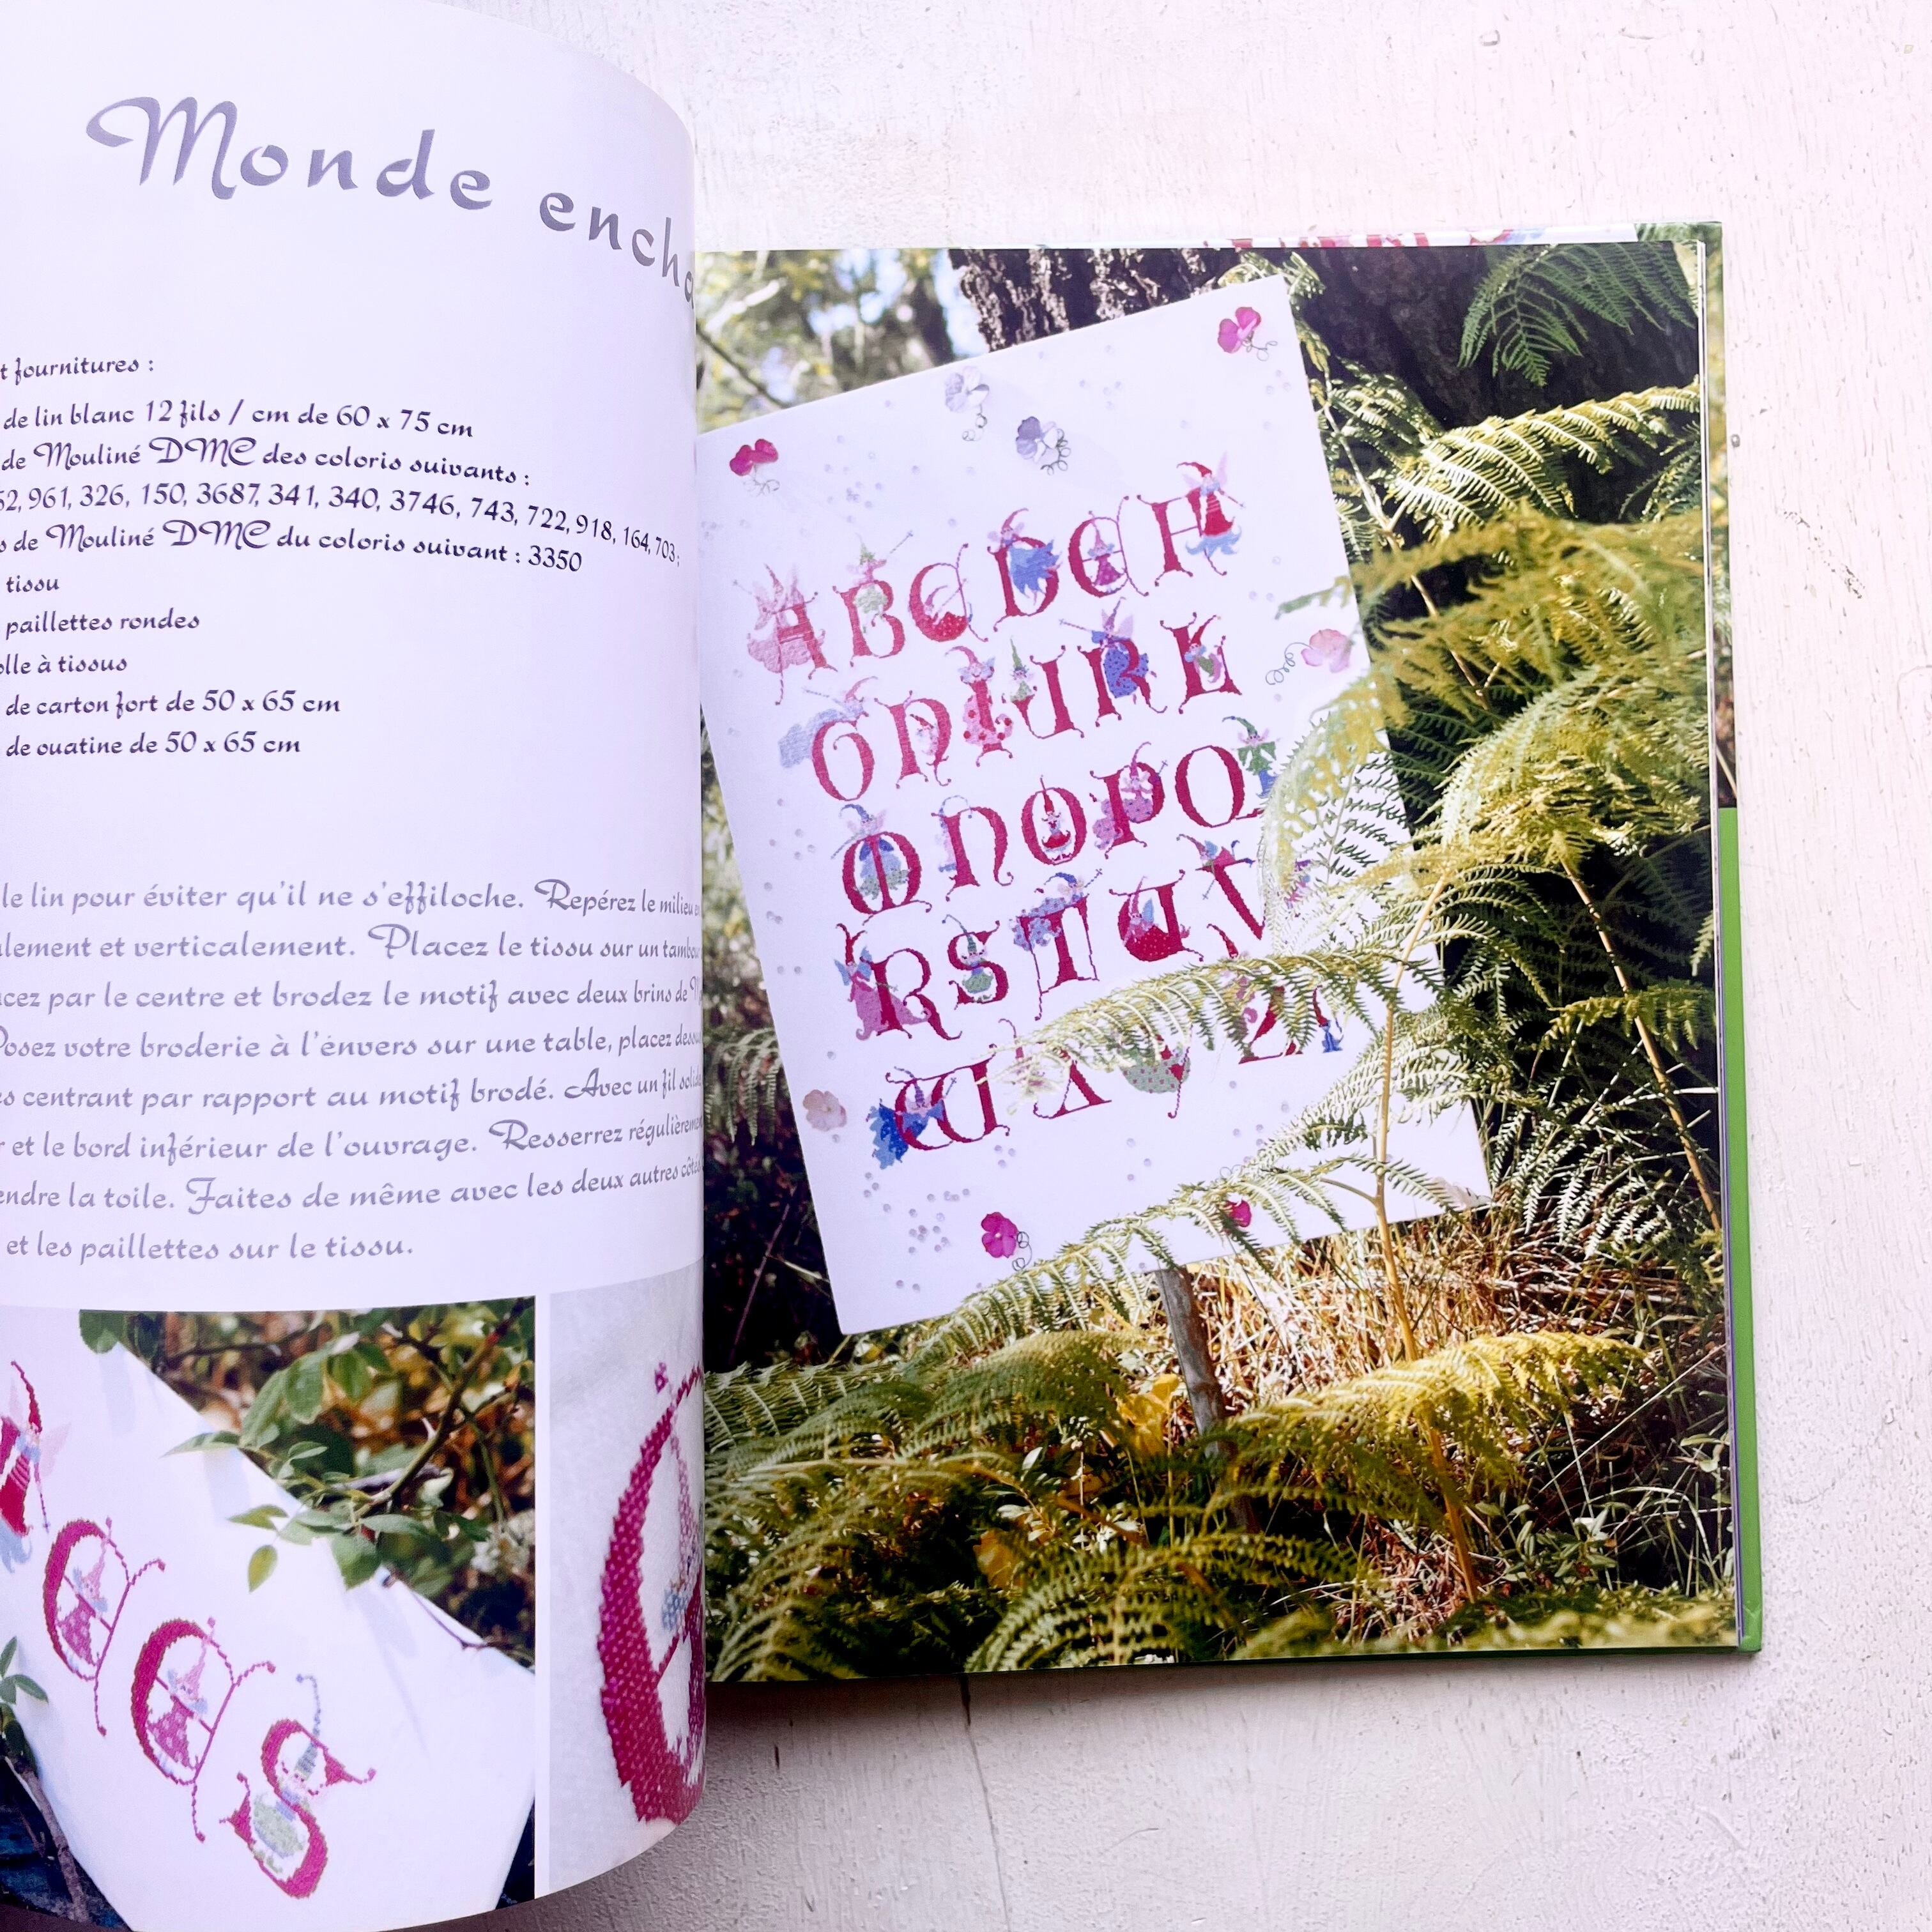 Monde
t fournitures :
de lin blanc 12 fils / cm de 60 x 75 cm
de Mouliné DMC des coloris suivants :
52, 961, 326, 150, 3687, 341, 340, 3746, 743, 722, 918, 164, 703 ;
s de Mouliné DMC du coloris suivant : 3350
tissu
paillettes rondes
olle à tissus
de carton fort de 50 x 65 cm
de ouatine de 50 x 65 cm
le lin pour éviter qu'il ne s'effiloche. Repérez le milieu
alement et verticalement. Placez le tissu sur un
par le centre et brodez le motif avec deux brins de
Posez votre broderie à l'envers sur une table, placez
es centrant par rapport au motif brodé. Avec un fil
r et le bord inférieur de l'ouvrage. Resserrez
endre la toile. Faites de même avec les deux autres
et les paillettes sur le tissu.
A B C D E F
G H I J K L
M N O P Q
R S T U V
W X Y Z